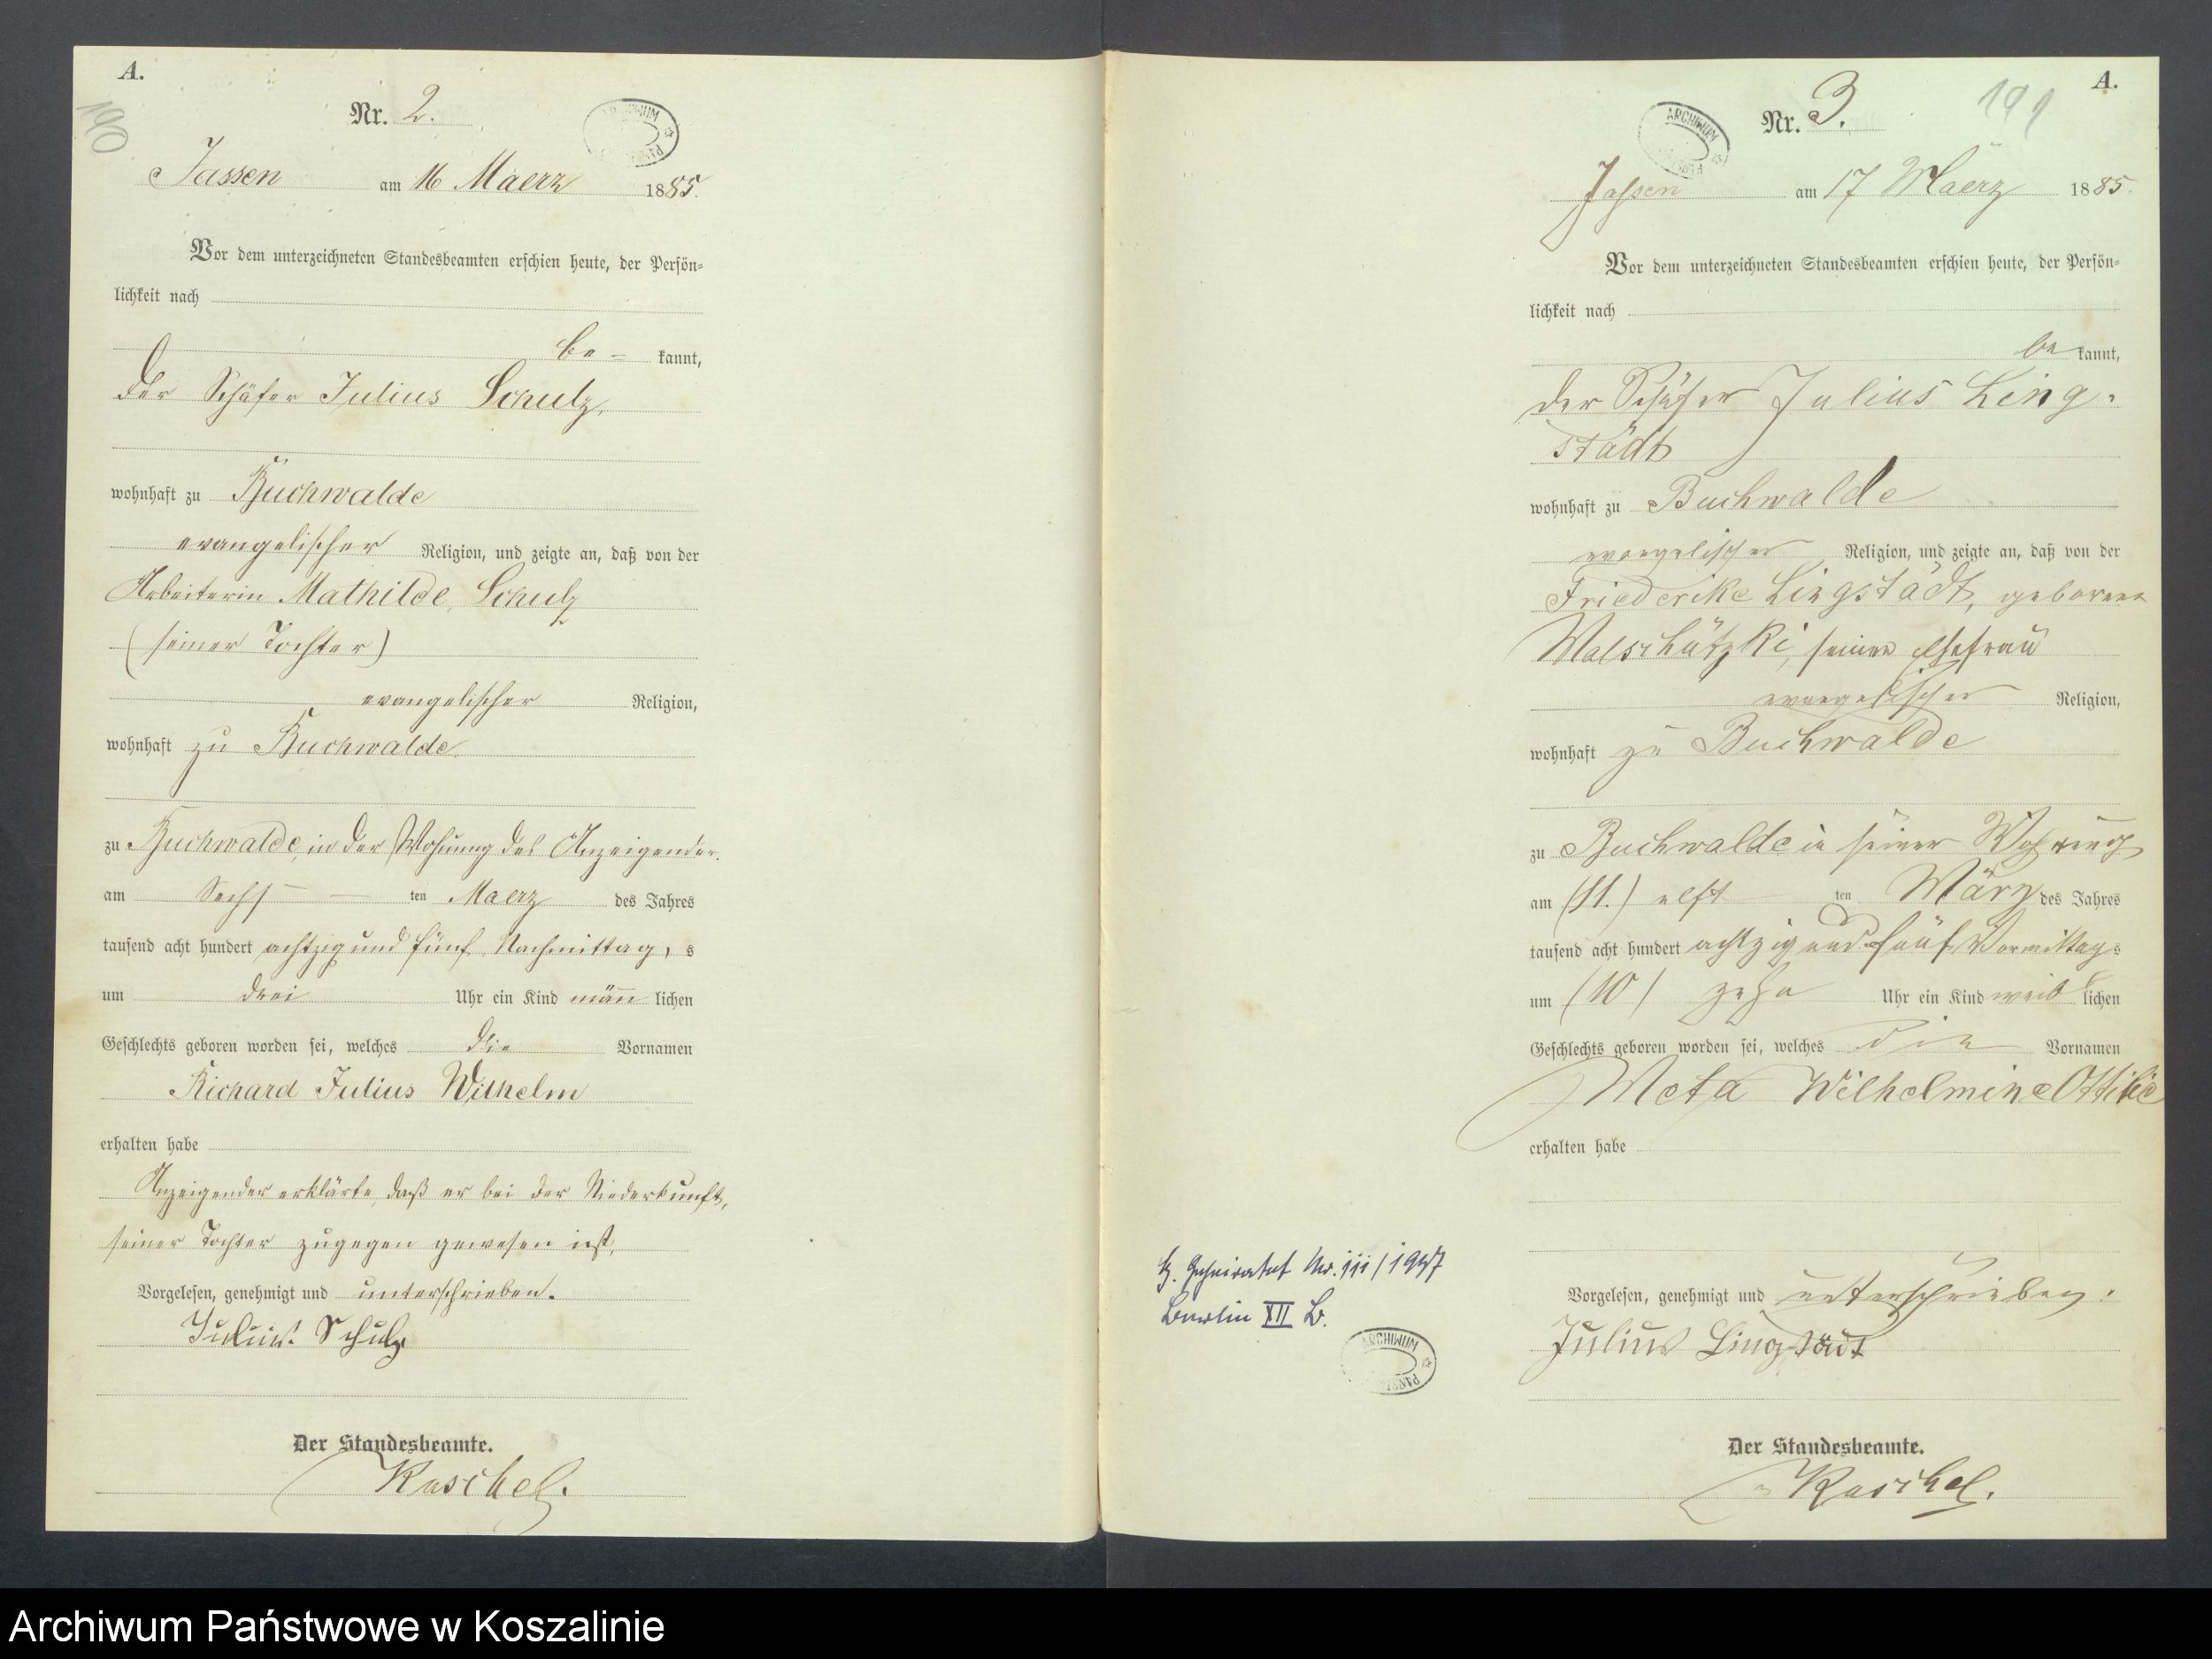 A.
190
Nr. 2.
ARCHIWUM
PAŃST
Jassen am 16 Maerz 1885.
Vor dem unterzeichneten Standesbeamten erschien heute, der Persön-
lichkeit nach
be- kannt,
der Schäfer Julius Schulz,
wohnhaft zu Buchwalde
evangelischer Religion, und zeigte an, daß von der
Arbeiterin Mathilde, Schulz
(seiner Tochter)
evangelischer Religion,
wohnhaft zu Buchwalde
zu Buchwalde, in der Wohnung des Anzeigender.
am Sechs- ten Maerz des Jahres
tausend acht hundert achtzig und fünf, Nachmittag, s
um drei Uhr ein Kind männ lichen
Geschlechts geboren worden sei, welches die Vornamen
Richard Julius Wilhelm
erhalten habe
Anzeigender erklärte, daß er bei der Niederkunft,
seiner Tochter zugegen gewesen ist,
Vorgelesen, genehmigt und unterschrieben.
Julius. Schulz
Der Standesbeamte.
Raschel.
A.
191
Nr. 3.
ARCHIWUM
Jassen am 17 Maerz 1885.
Vor dem unterzeichneten Standesbeamten erschien heute, der Persön-
lichkeit nach
be kannt,
der Schäfer Julius Ling-
städt
wohnhaft zu Buchwalde
evangelischer Religion, und zeigte an, daß von der
Friederike Lingstädt, geborene
Malschützki, seiner Ehefrau
evangelischer Religion,
wohnhaft zu Buchwalde
zu Buchwalde in seiner Wohnung
am (11.) elft ten März des Jahres
tausend acht hundert achtzig und fünf Vormittag s
um (10) zehn Uhr ein Kind weib lichen
Geschlechts geboren worden sei, welches die Vornamen
Meta Wilhelmine Ottilie
erhalten habe
Vorgelesen, genehmigt und unterschrieben.
Julius Lingstädt
Der Standesbeamte.
Raschel.
Geheiratet Nr. 111/1937
Berlin XII B.
ARCHIWUM
PAŃST
Archiwum Państwowe w Koszalinie